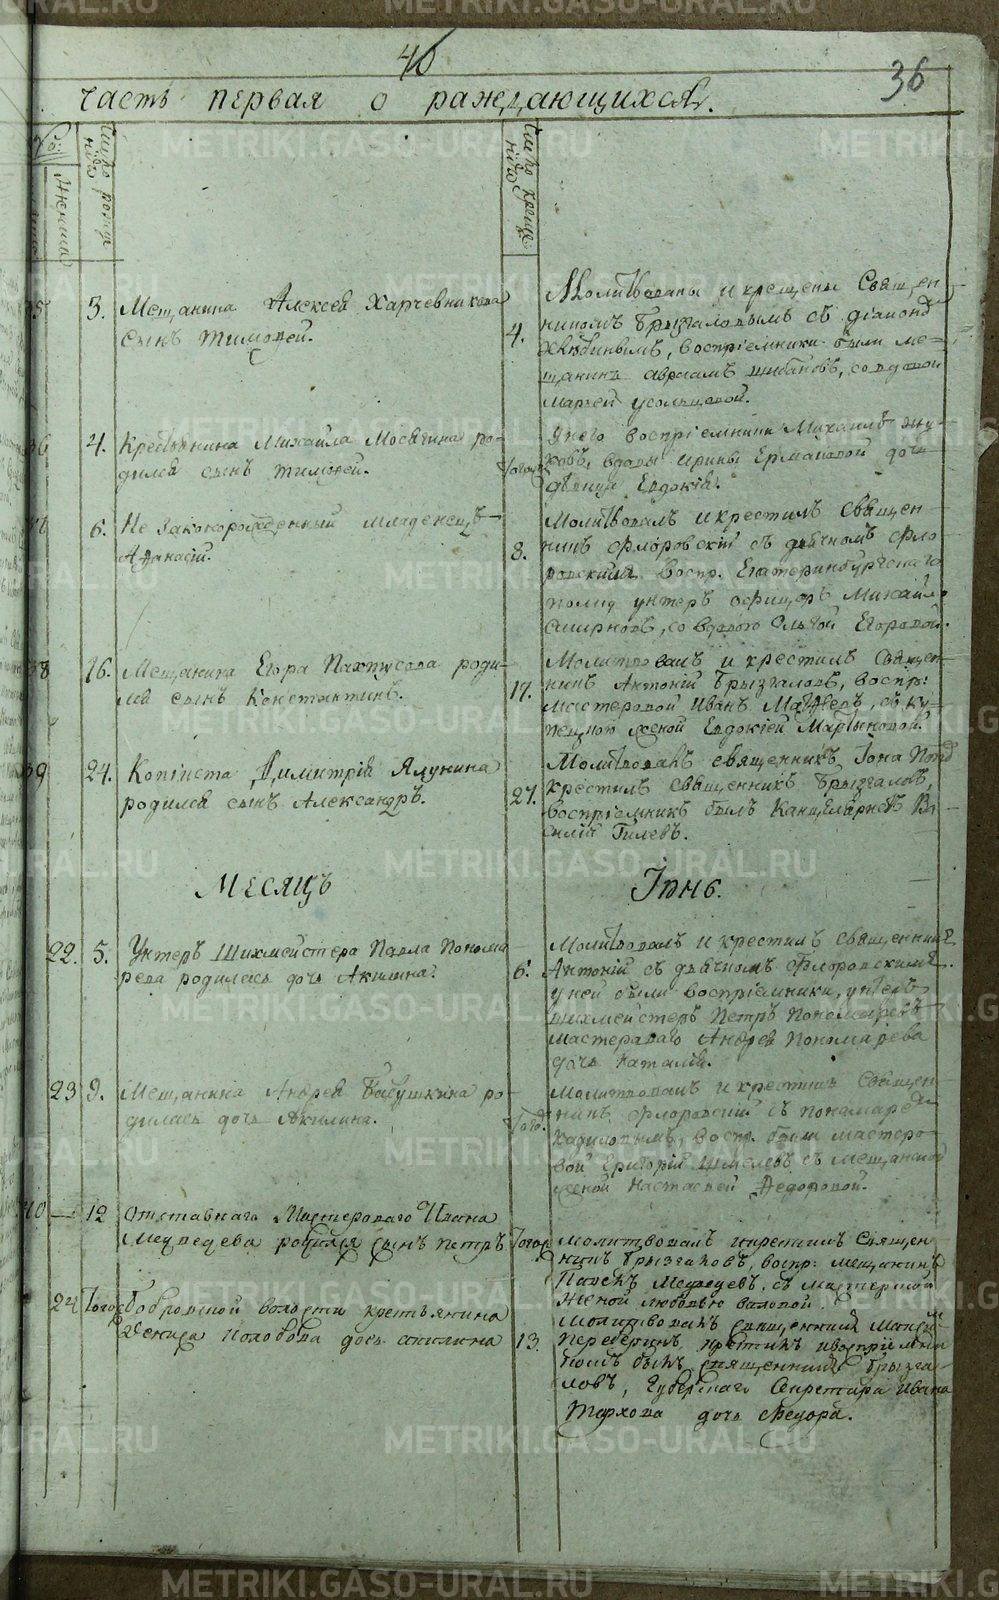 40
36
часть первая о раждающихся.
число рожде
нiя
женска
число креще
нiя
3. Мещанина Алексея Харчевникова
сынъ тимофей.
4.
Молитвованы и крещены Священ-
никомъ брызгаловымъ съ
воспрiемники были ме-
щанинъ авраамъ шибановъ, со вдовой
марьей усольцовой.
36 4. Крестьянина Михайла ро-
дился сынъ тимофей.
Тогожъ
У него воспрiемники Михаилъ
вдовы ирины Ермаковой дочь
девица Евдокiя.
6. Не законорожденный младенецъ
Афанасiй.
8.
Молитвовалъ и крестилъ священ-
никъ Флоровскiй съ дьячкомъ Фло-
ровскимъ воспр. Екатеринбургскаго
полку унтеръ офицеръ Михайло
Смирновъ, со вдовою Ольгой Егоровой.
38 16. Мещанина Егора Пахтусова роди-
лся сынъ Константинъ.
17.
Молитвовалъ и крестилъ Священ-
никъ Антонiй брызгаловъ, воспр:
мастеровой Иванъ съ ку-
пецкой женой Евдокiей Мартыновой.
39 24. Копiиста Димитрiя Ялунина
родился сынъ Александръ.
27.
Молитвовалъ священникъ Iона
крестилъ священникъ брызгаловъ,
воспрiемникъ былъ Канцеляристъ Ва-
силiй Гилевъ.
Месяцъ Iюнь.
22. 5. Унтеръ Шихмейстера Павла Понома
рева родилась дочь Акилина.
6.
Молитвовалъ и крестилъ священникъ
Антонiй съ дьячкомъ Флоровскимъ.
у ней были воспрiемники, унтеръ
шихмейстеръ Петръ Пономаревъ
мастероваго Андрея Пономарева
дочь наталiя.
23 9. Мещанина Андрея Бабушкина ро-
дилась дочь Акилина.
Того.
Молитвовалъ и крестилъ Священ-
никъ Флоровскiй съ пономаремъ
воспр. были мастеро-
вой Григорiй Шмелевъ съ мещанской
женой Настасьей Федоровой.
40 — 12 отставнаго Мастероваго Ивана
Медведева родился сынъ петръ
Тогож
молитвовалъ икрестилъ Священ
никъ брызгаловъ, воспр: мещанинъ
Павелъ Медведевъ, съ мастерской
женой любовью
24 Тогож бобровской волости крестьянина
Дениса дочь акилина
13.
молитвовалъ священникъ Максим
крестилъ ивоспрiемни
комъ былъ священникъ брызга-
ловъ, Губернскаго Секретаря Ивана
Тархова дочь Федора.